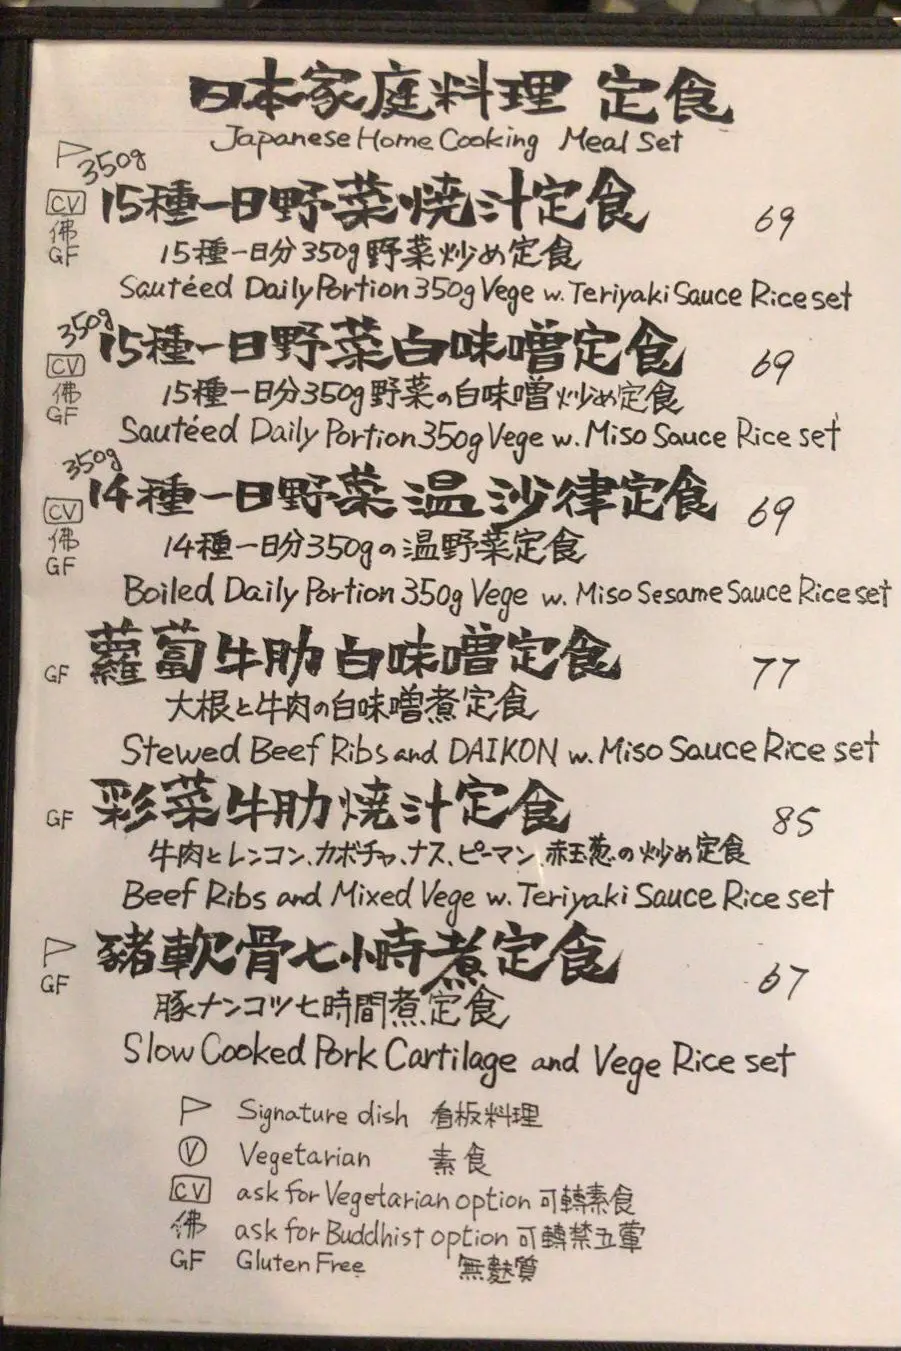 日本家庭料理 定食
Japanese Home Cooking Meal Set
350g
CV 15種一日野菜燒汁定食 69
佛
GF 15種一日分350g野菜炒め定食
Sautéed Daily Portion 350g Vege w. Teriyaki Sauce Rice set
350g
CV 15種一日野菜白味噌定食 69
佛 15種一日分350g野菜の白味噌炒め定食
GF
Sautéed Daily Portion 350g Vege w. Miso Sauce Rice set
350g
CV 14種一日野菜温沙律定食 69
佛 14種一日分350gの温野菜定食
GF
Boiled Daily Portion 350g Vege w. Miso Sesame Sauce Rice set
GF 蘿蔔牛肋白味噌定食 77
大根と牛肉の白味噌煮定食
Stewed Beef Ribs and DAIKON w. Miso Sauce Rice set
GF 彩菜牛肋燒汁定食 85
牛肉とレンコン、カボチャ、ナス、ピーマン、赤玉葱の炒め定食
Beef Ribs and Mixed Vege w. Teriyaki Sauce Rice set
豬軟骨七小時煮定食 67
GF
豚ナンコツ七時間煮定食
Slow Cooked Pork Cartilage and Vege Rice set
Signature dish 看板料理
V Vegetarian 素食
CV ask for Vegetarian option 可轉素食
佛 ask for Buddhist option 可轉禁五葷
GF Gluten Free 無麩質